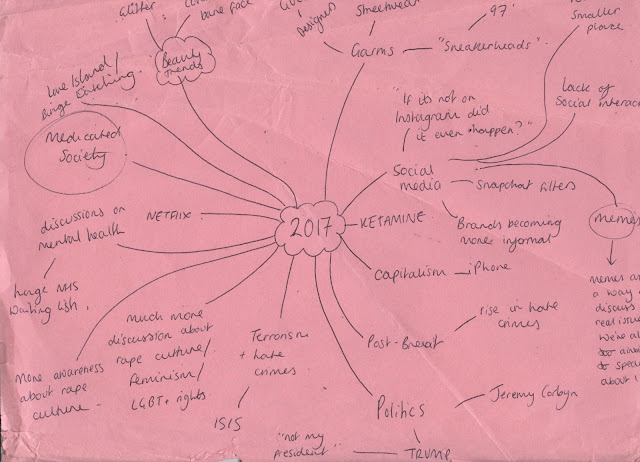 Glitter
bare face
Designer
Streetwear
97'
Garms
"Sneakerheads"
smaller
place
Love Island/
Binge Watching.
Beauty
Trends
"If its not on
Instagram did
it even happen?"
Lack of
Social interac
Medicated
Society
Social
media
Snapchat filters
discussions on
mental health
NETFLIX
2017
KETAMINE
Brands becoming
more informal
memes
Capitalism
iPhone
huge NHS
waiting list.
memes as
a way
discuss
real issue
We're al
to spea
about!
much more
discussion about
rape culture/
feminism/
LGBT+ rights
Terrorism
+ hate
crimes
Post-Brexit
rise in hate
crimes
More awareness
about rape
culture
ISIS
Politics
Jeremy Corbyn
"not my
president"
TRUMP